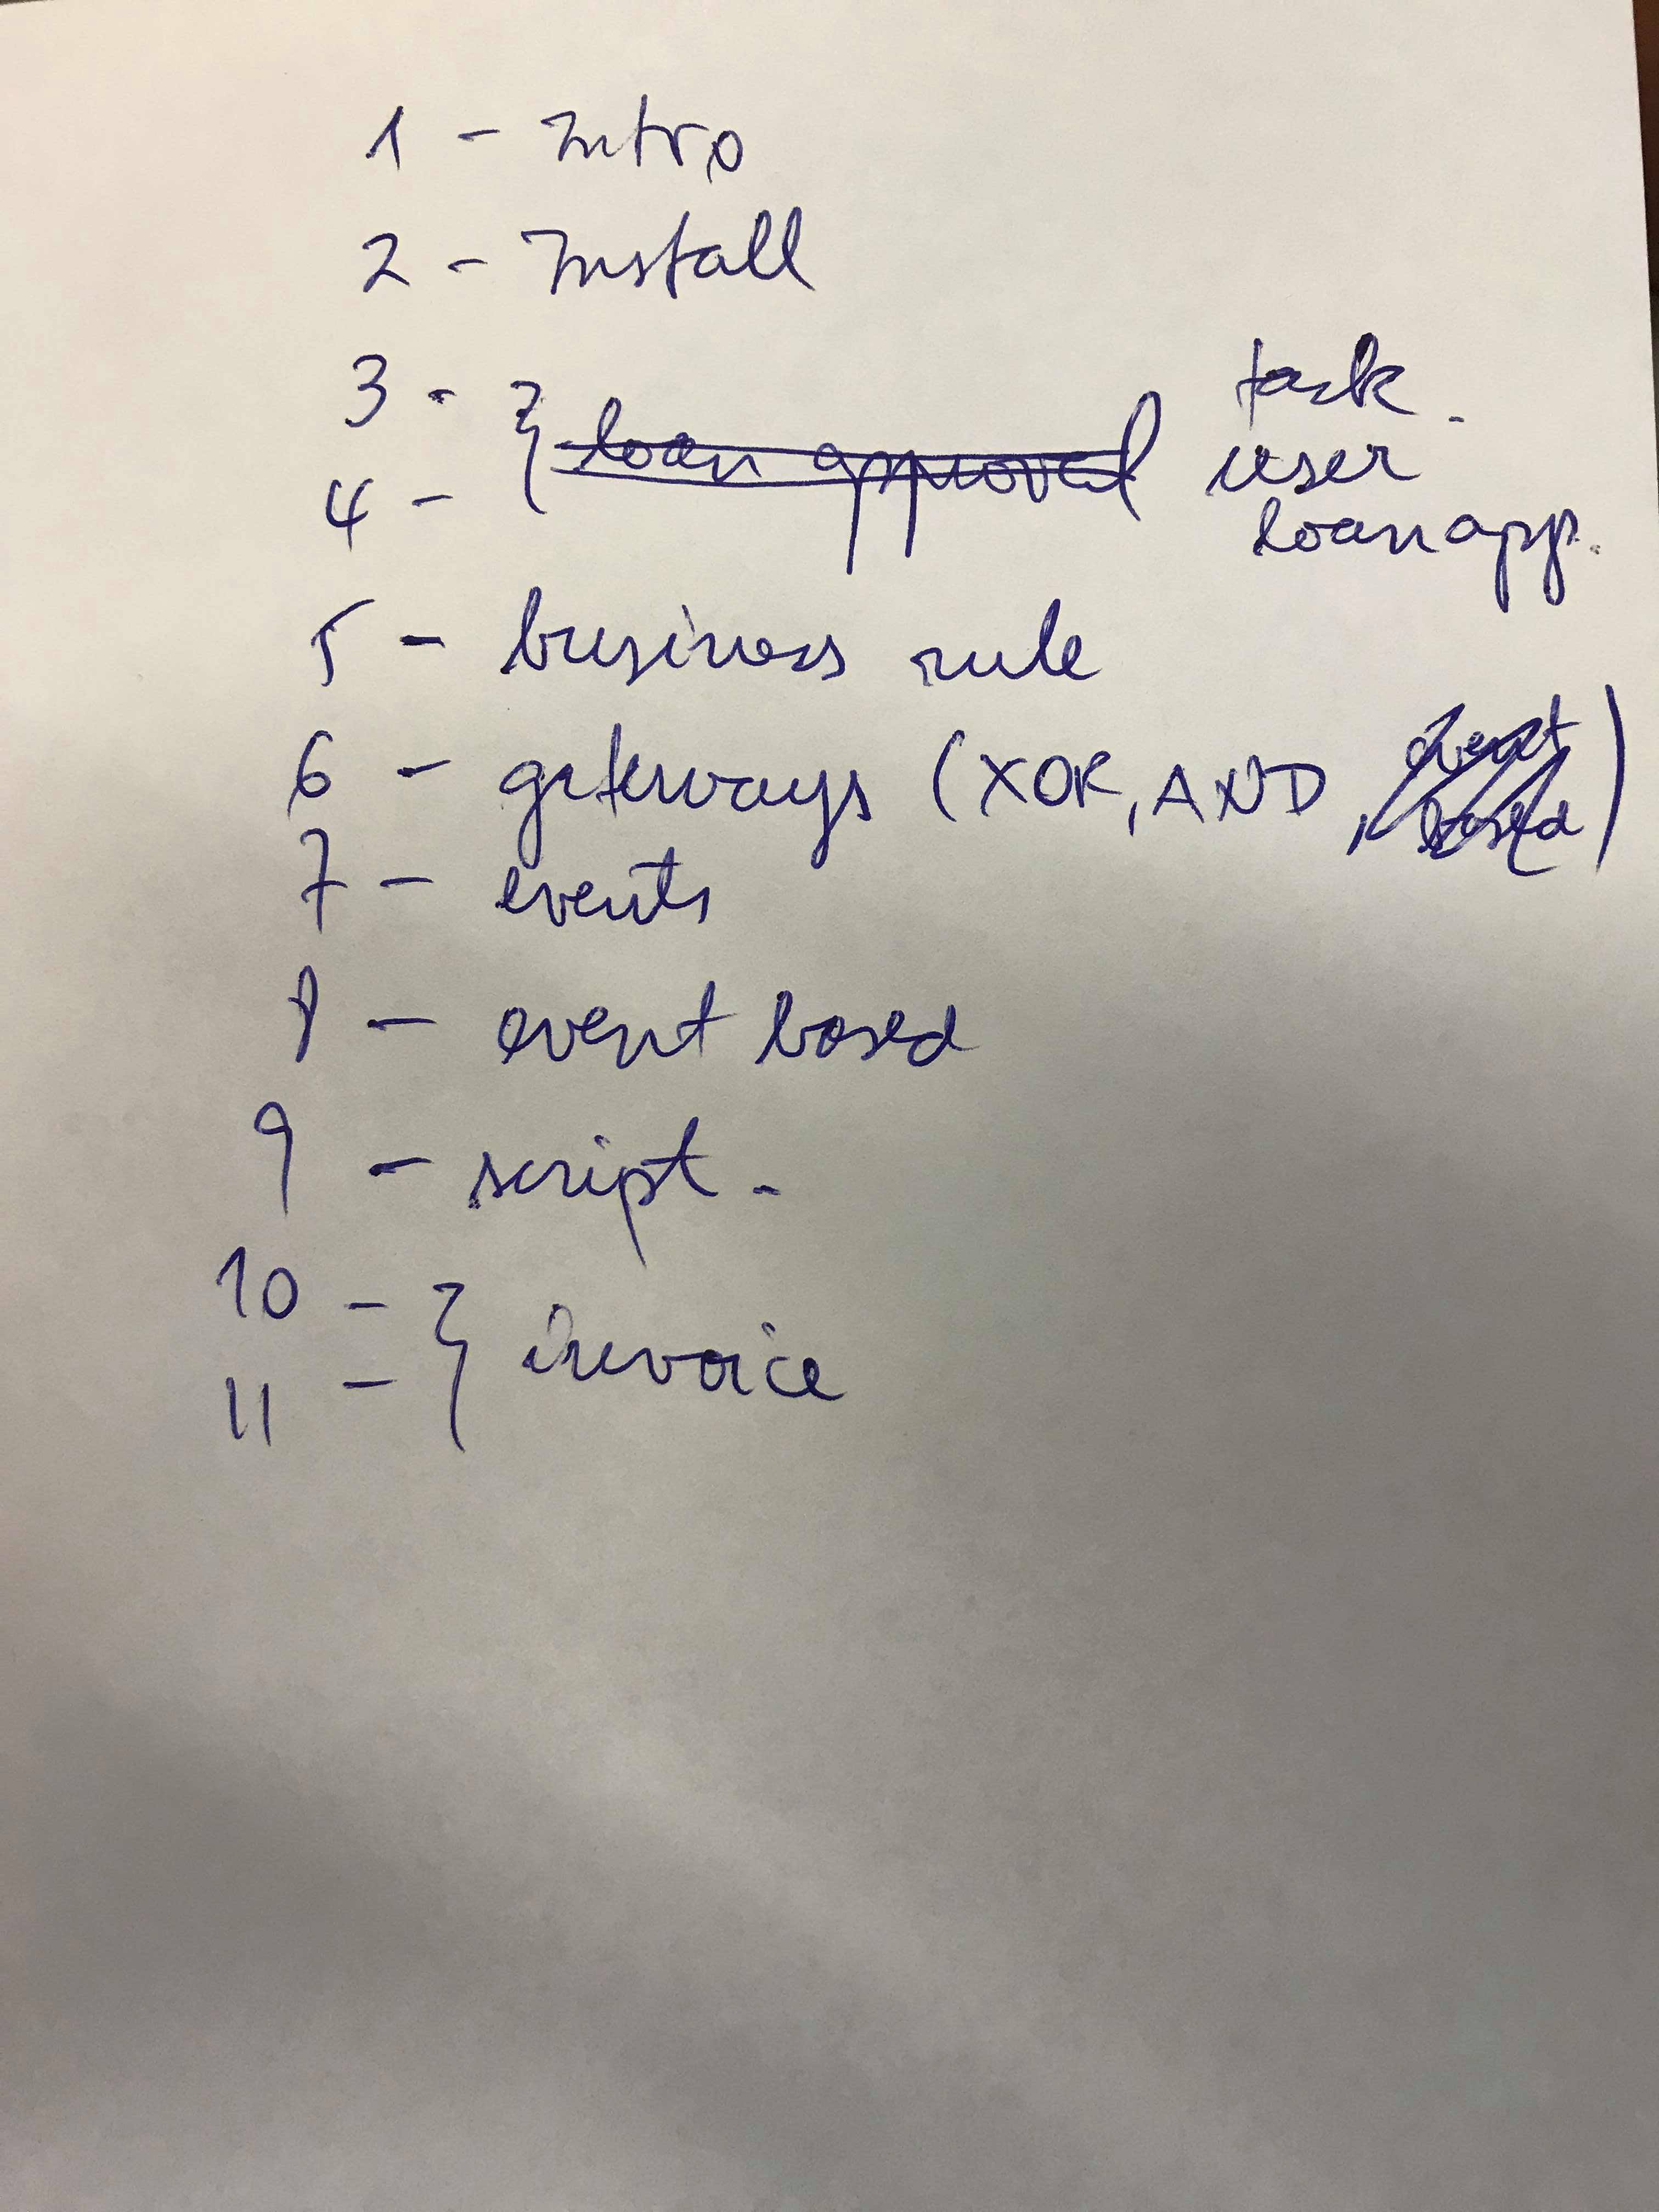 1 - Intro
2 - Install
3 - } task.
loan approval user
4 - loan app.
5 - business rule
6 - gateways (XOR, AND, event based)
7 - events
8 - event based
9 - script.
10 - } invoice
11 -